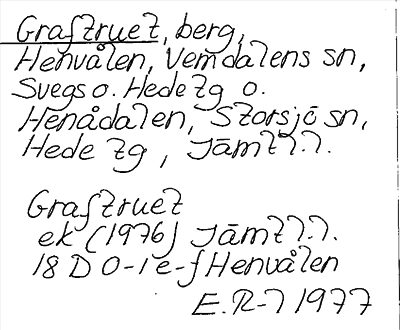 Graftruet, berg,
Henvålen, Vemdalens sn,
Svegs o. Hede tg o.
Henådalen, Storsjö sn,
Hede tg, Jämtl.
Graftruet
ek (1976) Jämtl.
18 D 0-1 e-f Henvålen
E.R-7 1977